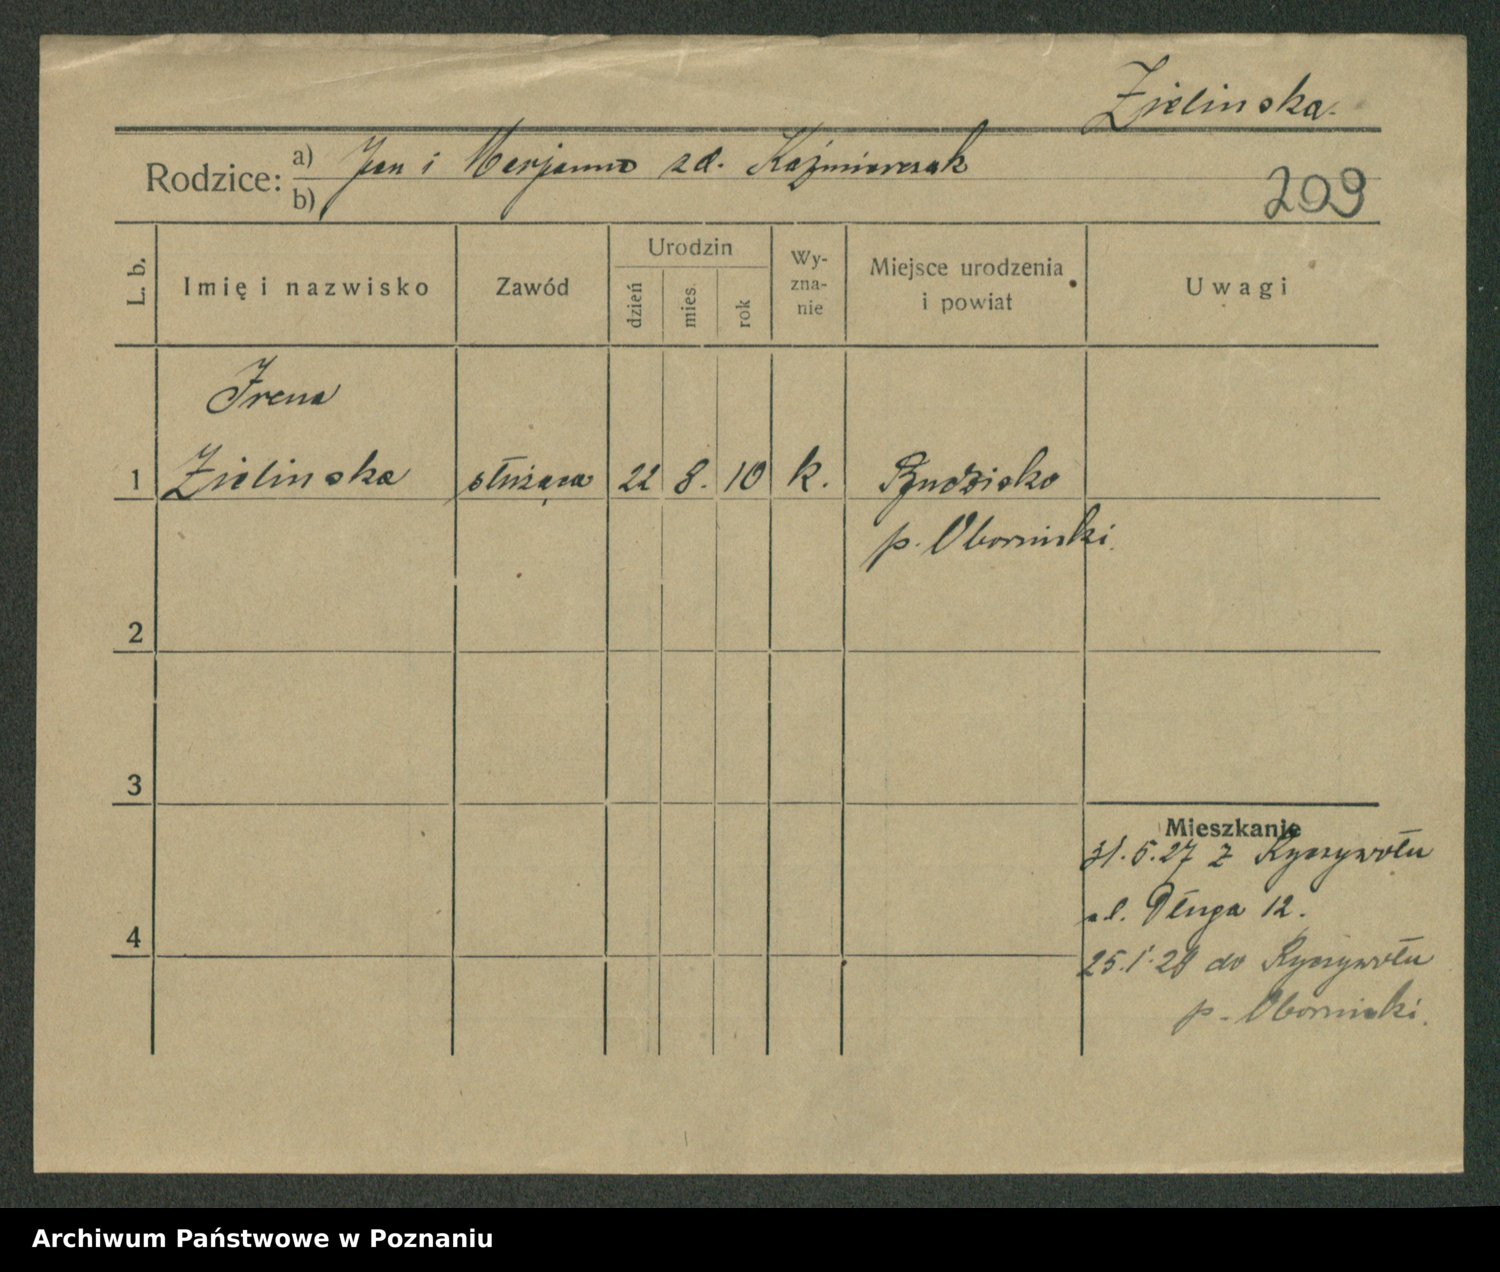 Zielinska.
Rodzice: a) Jan i Marjanna zd. Kaźmierczak
b)
209
L. b. Imię i nazwisko Zawód Urodzin dzień mies. rok Wy-zna-nie Miejsce urodzenia i powiat Uwagi
Irena
1 Zielinska służąca 22 8. 10 k.
p. Obornicki.
2
3
Mieszkanie
31.5.27 z Ryczywołu
ul. Długa 12.
4
25.1.28 do Ryczywołu
p. Obornicki.
Archiwum Państwowe w Poznaniu